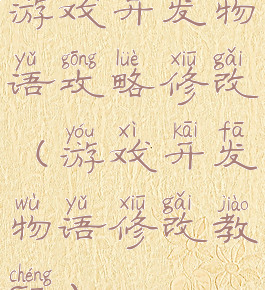 游戏开发物
yǔ gōng lüè xiū gǎi
语攻略修改
yóu xì kāi fā
（游戏开发
wù yǔ xiū gǎi jiào
物语修改教
chéng